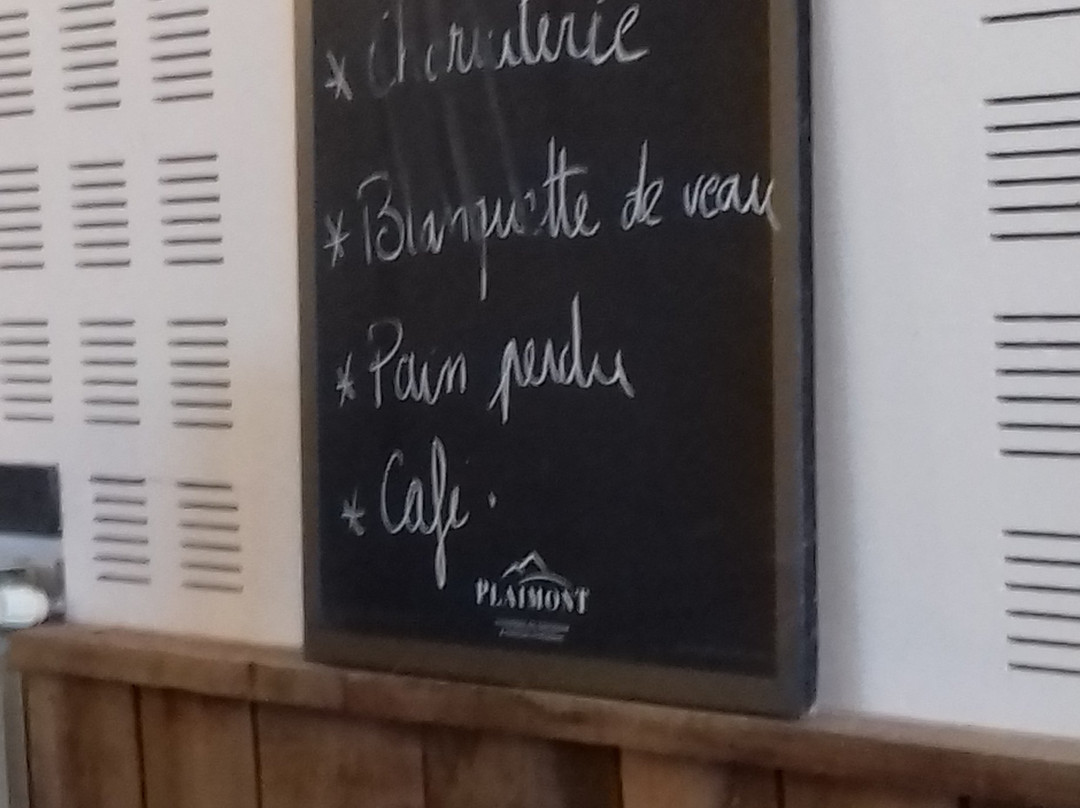 * Charcuterie
* Blanquette de veau
* Pain perdu
* Café.
PLAIMONT